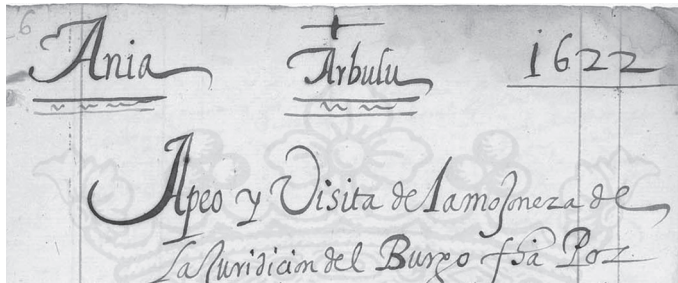 Ania Arbulu 1622
Apeo y Visita de lamojoneza de
La Juridicion del Burgo fha Por